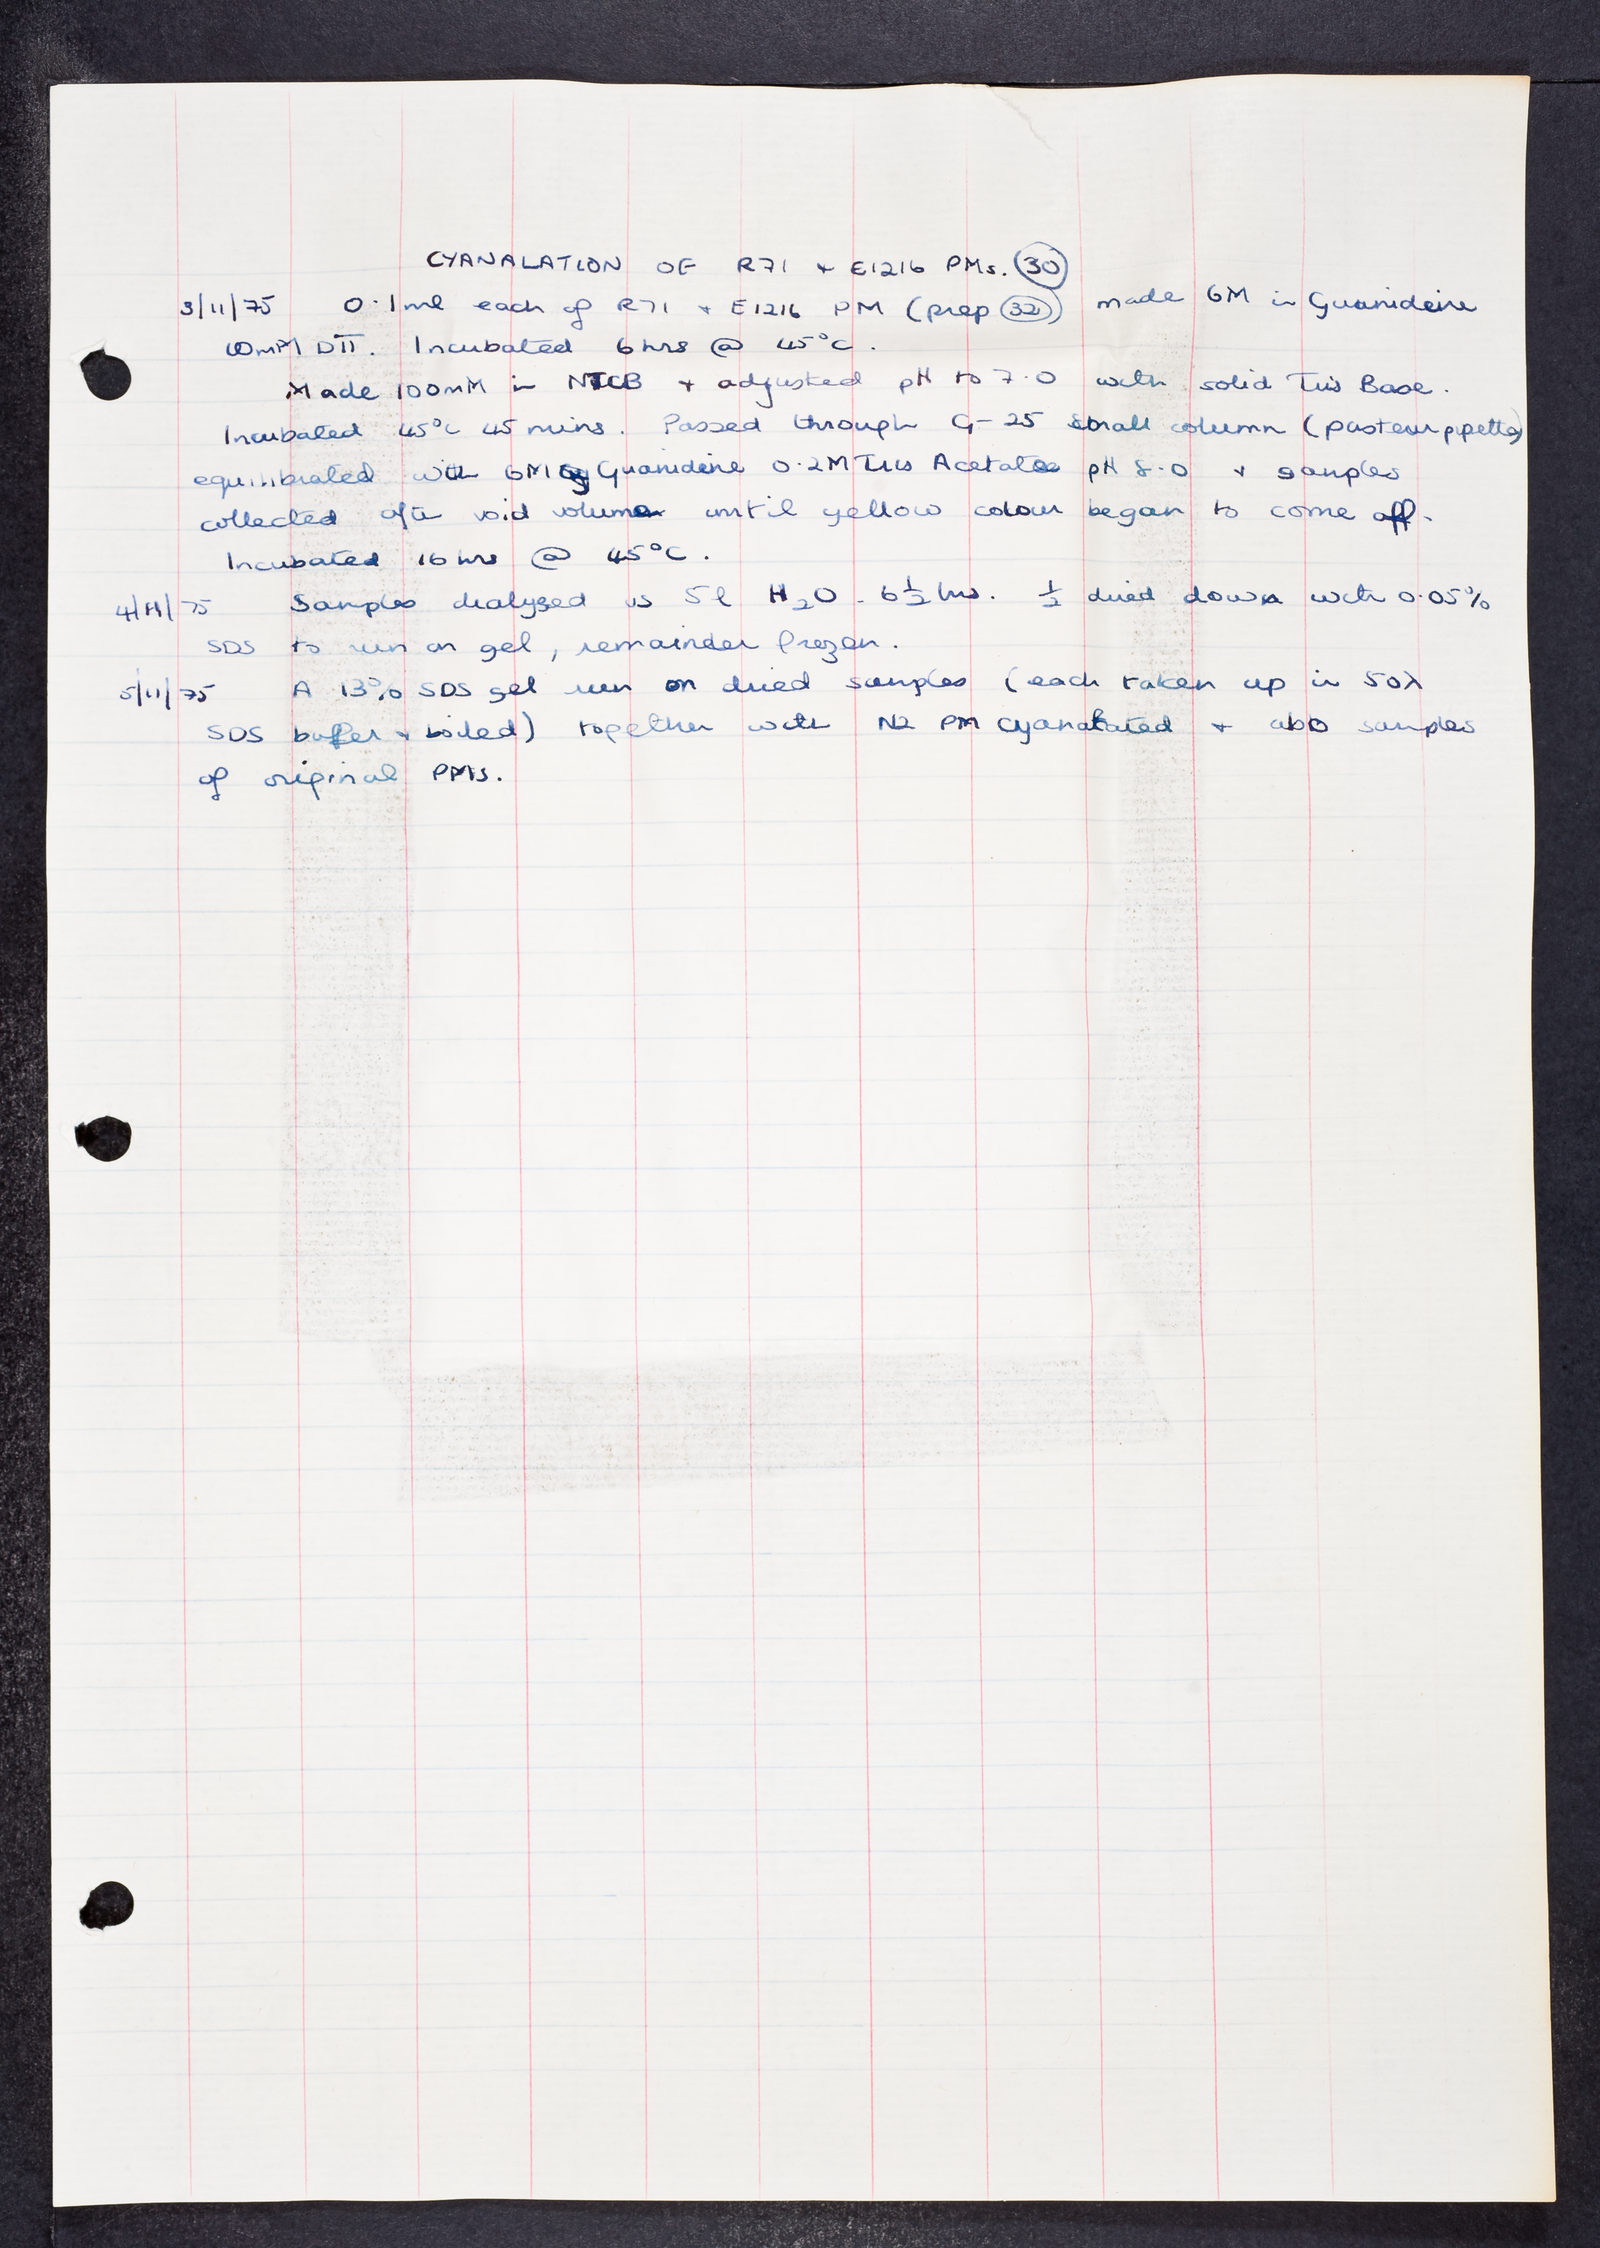 CYANALATION OF R71 + E1216 PMs. 30
3/11/75 0.1ml each of R71 + E1216 PM (prep 32) made 6M in Guanideine
10mM DTT. Incubated 6 hrs @ 45°C.
Made 100mM in NTCB + adjusted pH to 7.0 with solid Tris Base.
Incubated 45°C 45 mins. Passed through G-25 small column (pasteur pipette)
equilibrated with 6M Guanidine 0.2M Tris Acetate pH 8.0 + samples
collected after void volume until yellow colour began to come off.
Incubated 16 hrs @ 45°C.
4/11/75 Samples dialysed vs 5l H₂O. 6½ hrs. ½ dried down with 0.05%
SDS to run on gel, remainder frozen.
5/11/75 A 13% SDS gel run on dried samples (each taken up in 50λ
SDS buffer + boiled) together with N2 PM cyanalated + also samples
of original PMs.